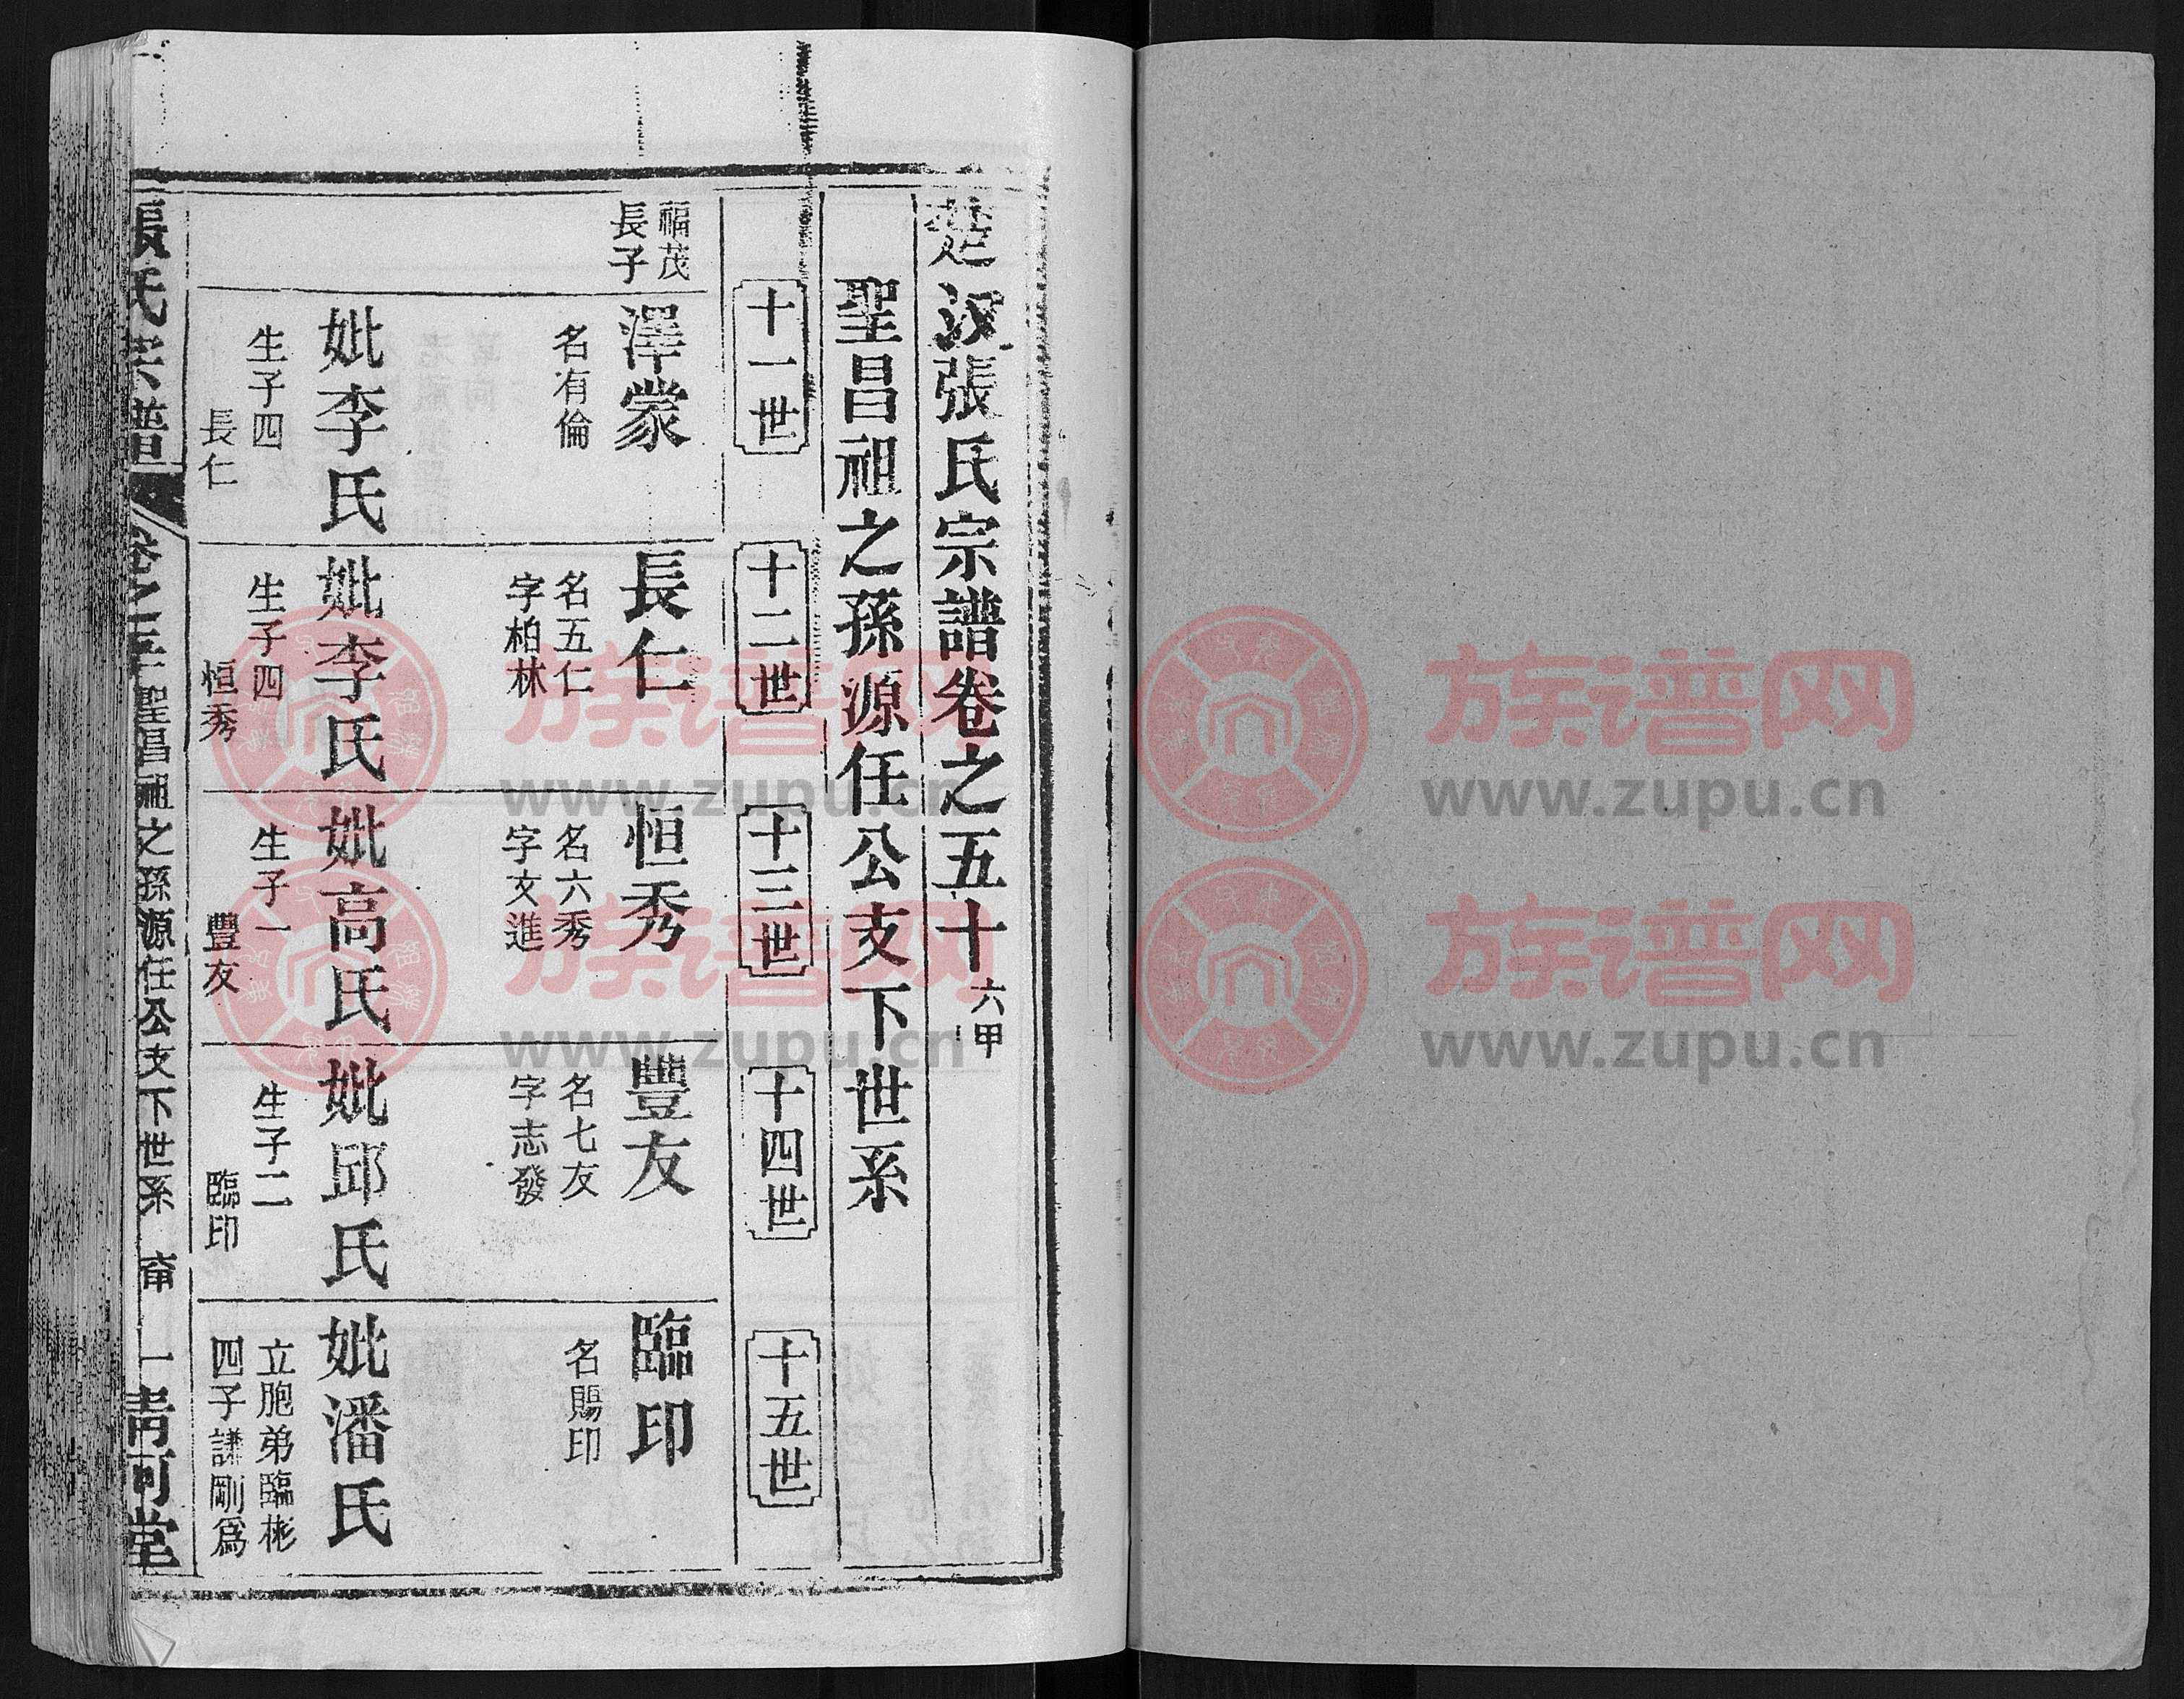 楚汉張氏宗譜卷之五十六甲
聖昌祖之孫源任公支下世系
十一世
十二世
十三世
十四世
十五世
福茂
長子
澤蒙
名有倫
妣李氏
生子四
長仁
長仁
名五仁
字柏林
妣李氏
生子四
恒秀
恒秀
名六秀
字文進
妣高氏
生子一
豐友
豐友
名七友
字志發
妣邱氏
生子二
臨印
臨印
名賜印
妣潘氏
立胞弟臨彬
四子謙剛爲
張氏宗譜
聖昌祖之孫源任公支下世系
一
清河堂
族谱网
www.zupu.cn
族谱网
www.zupu.cn
族谱网
www.zupu.cn
族谱网
www.zupu.cn